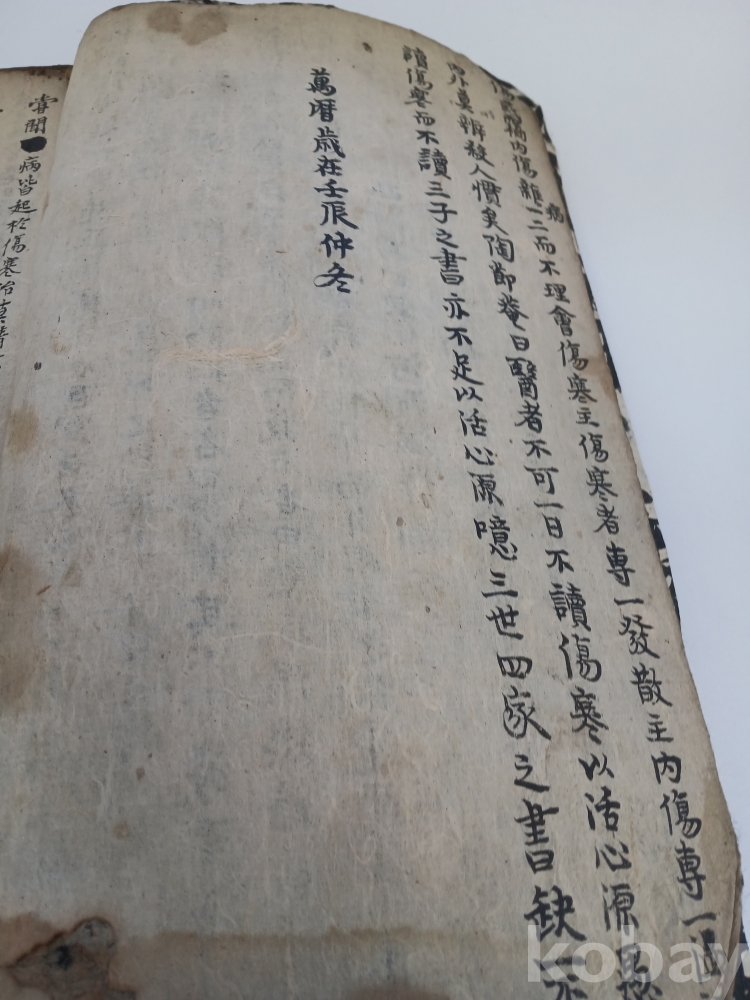 病
內傷雜一二而不理會傷寒主傷寒者專一發散主內傷專一
莫辨殺人慣矣陶節菴曰醫者不可一日不讀傷寒以活心源
讀傷寒而不讀三子之書亦不足以活心源噫三世四家之書缺一不
萬曆歲在壬辰仲冬
嘗聞
病皆起於傷寒治莫
kobay